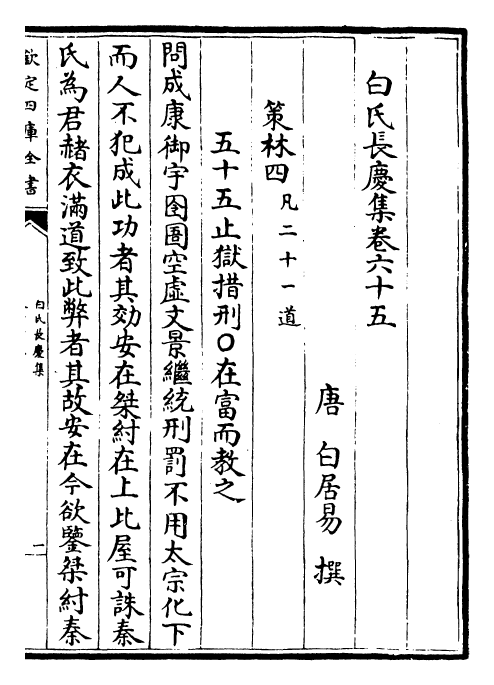 白氏長慶集卷六十五
唐 白居易 撰
策林四 凡二十一道
五十五止獄措刑○在富而教之
問成康御宇囹圄空虛文景繼統刑罰不用太宗化下
而人不犯成此功者其効安在桀紂在上比屋可誅秦
氏為君赭衣滿道致此弊者其故安在今欲鑒桀紂秦
欽定四庫全書
白氏長慶集